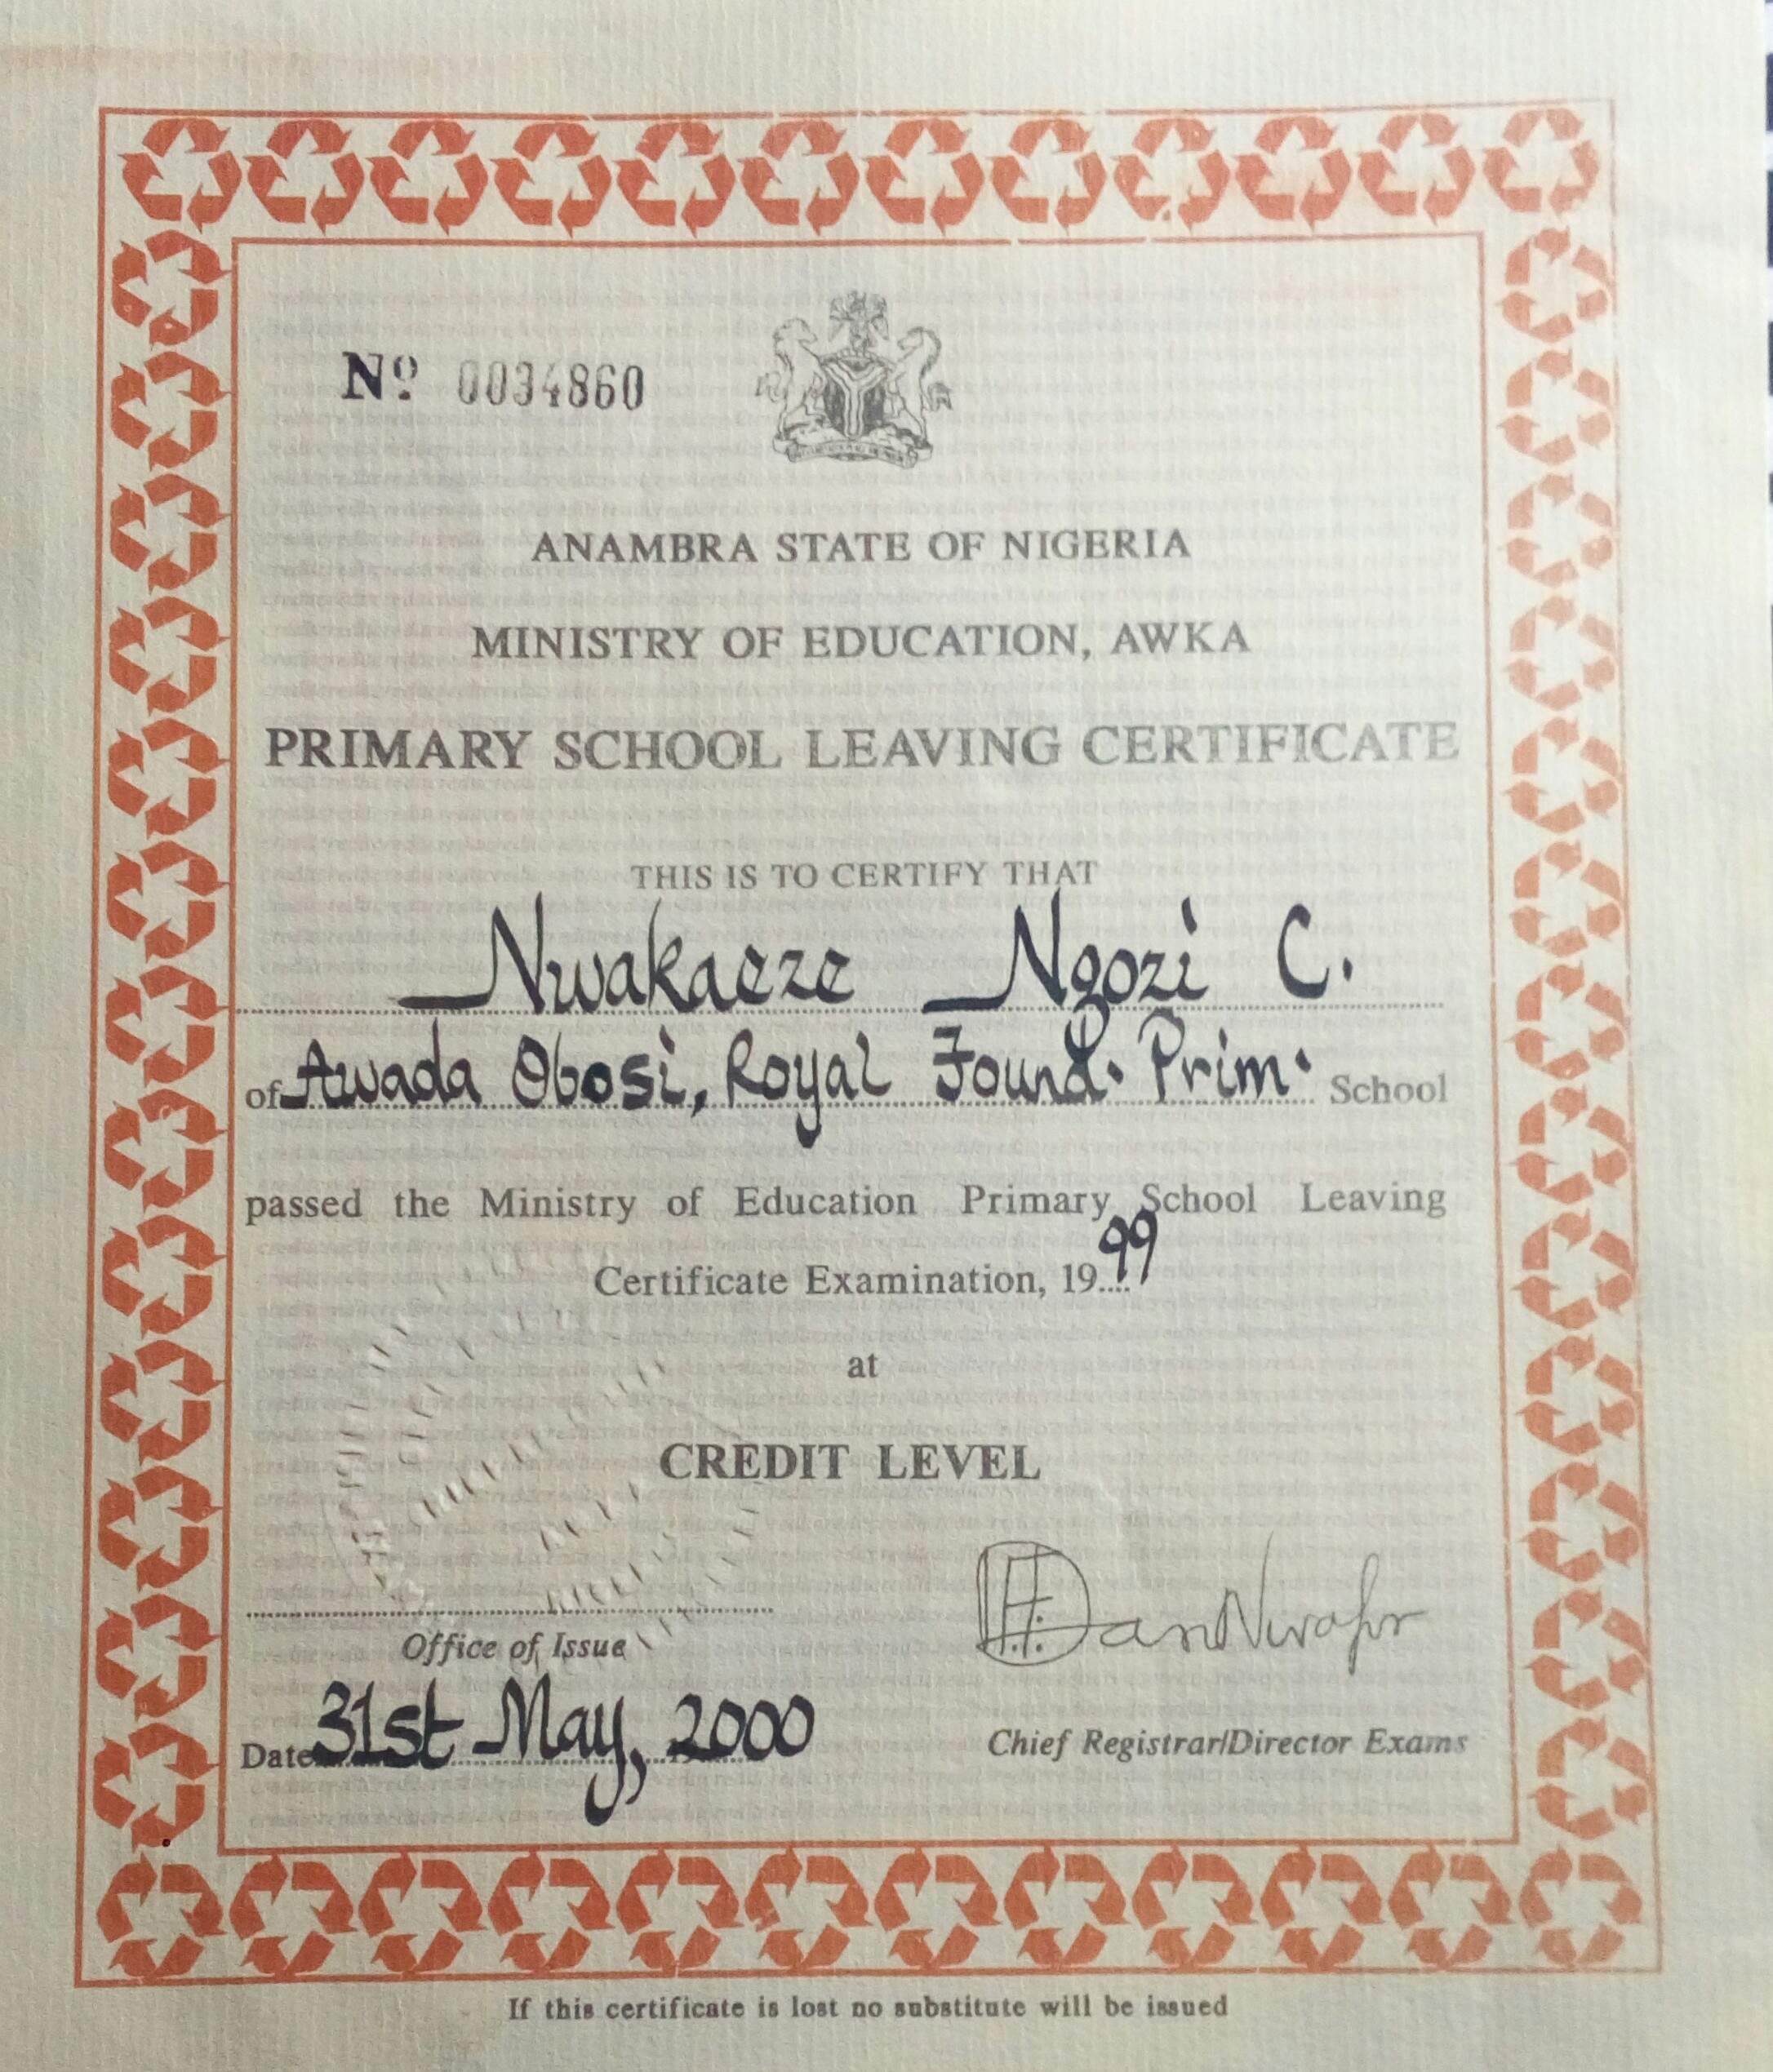 Nº 0034860
ANAMBRA STATE OF NIGERIA
MINISTRY OF EDUCATION, AWKA
PRIMARY SCHOOL LEAVING CERTIFICATE
THIS IS TO CERTIFY THAT
Nwakaeze Ngozi C.
of Awada Obosi, Royal Found. Prim. School
passed the Ministry of Education Primary School Leaving
Certificate Examination, 19....99
at
CREDIT LEVEL
Office of Issue
Date 31st May, 2000
Chief Registrar/Director Exams
If this certificate is lost no substitute will be issued